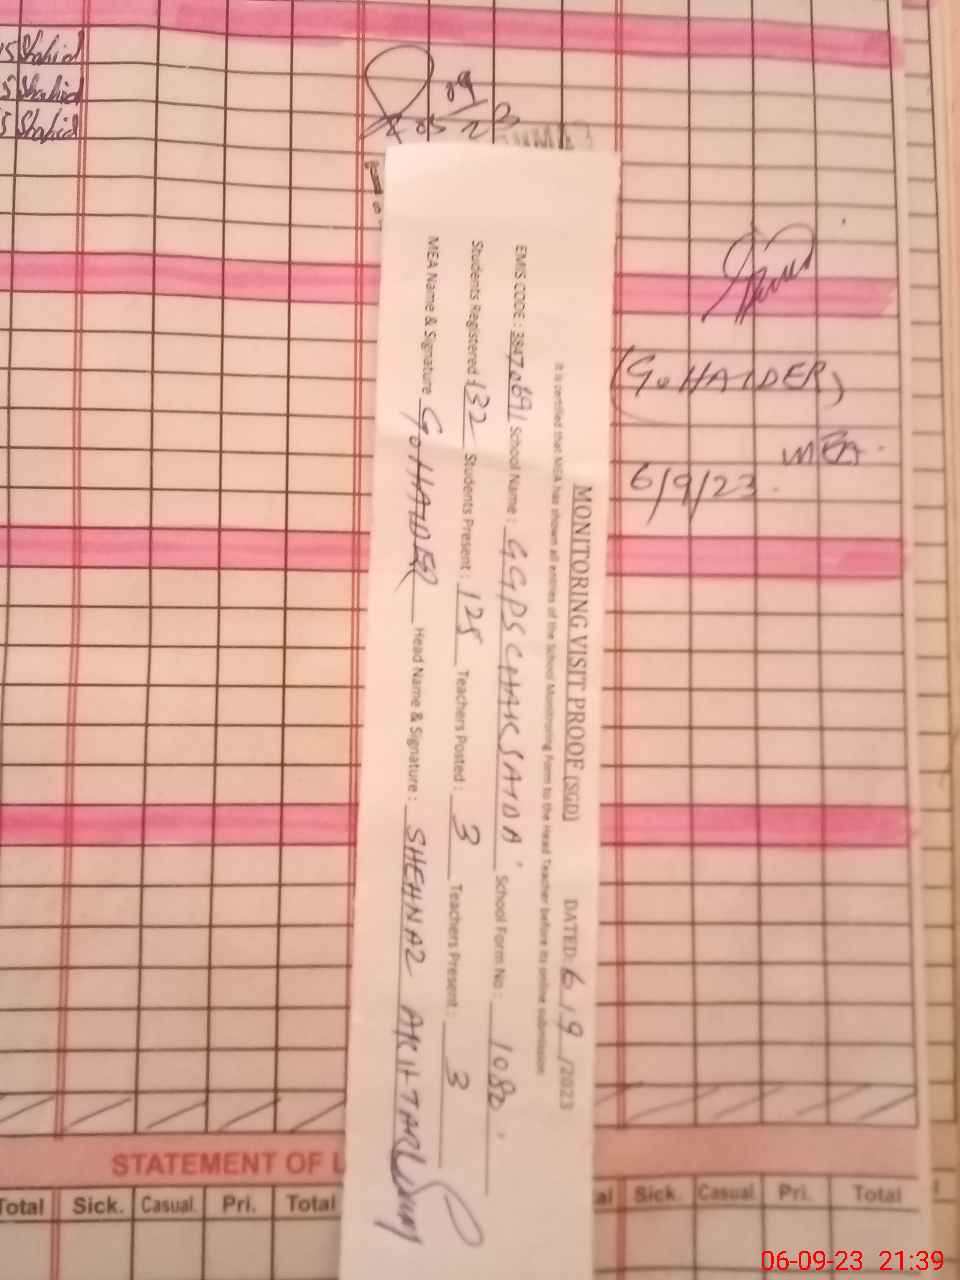 Shahid
Shahid
Shahid
MONITORING VISIT PROOF (SGD) DATED: 6/9/2023
It is certified that MEA has shown all entries of the School Monitoring Form to the Head Teacher before its online submission
EMIS CODE : 38470691 School Name : GGPS CHAK SAIDA School Form No : 1080
Students Registered : 132 Students Present : 125 Teachers Posted : 3 Teachers Present : 3
MEA Name & Signature G. HAIDER Head Name & Signature : SHEHNAZ AKHTAR
(G. HAIDER)
MEA.
6/9/23.
STATEMENT OF L
Total Sick. Casual. Pri. Total
al Sick. Casual. Pri. Total
06-09-23 21:39